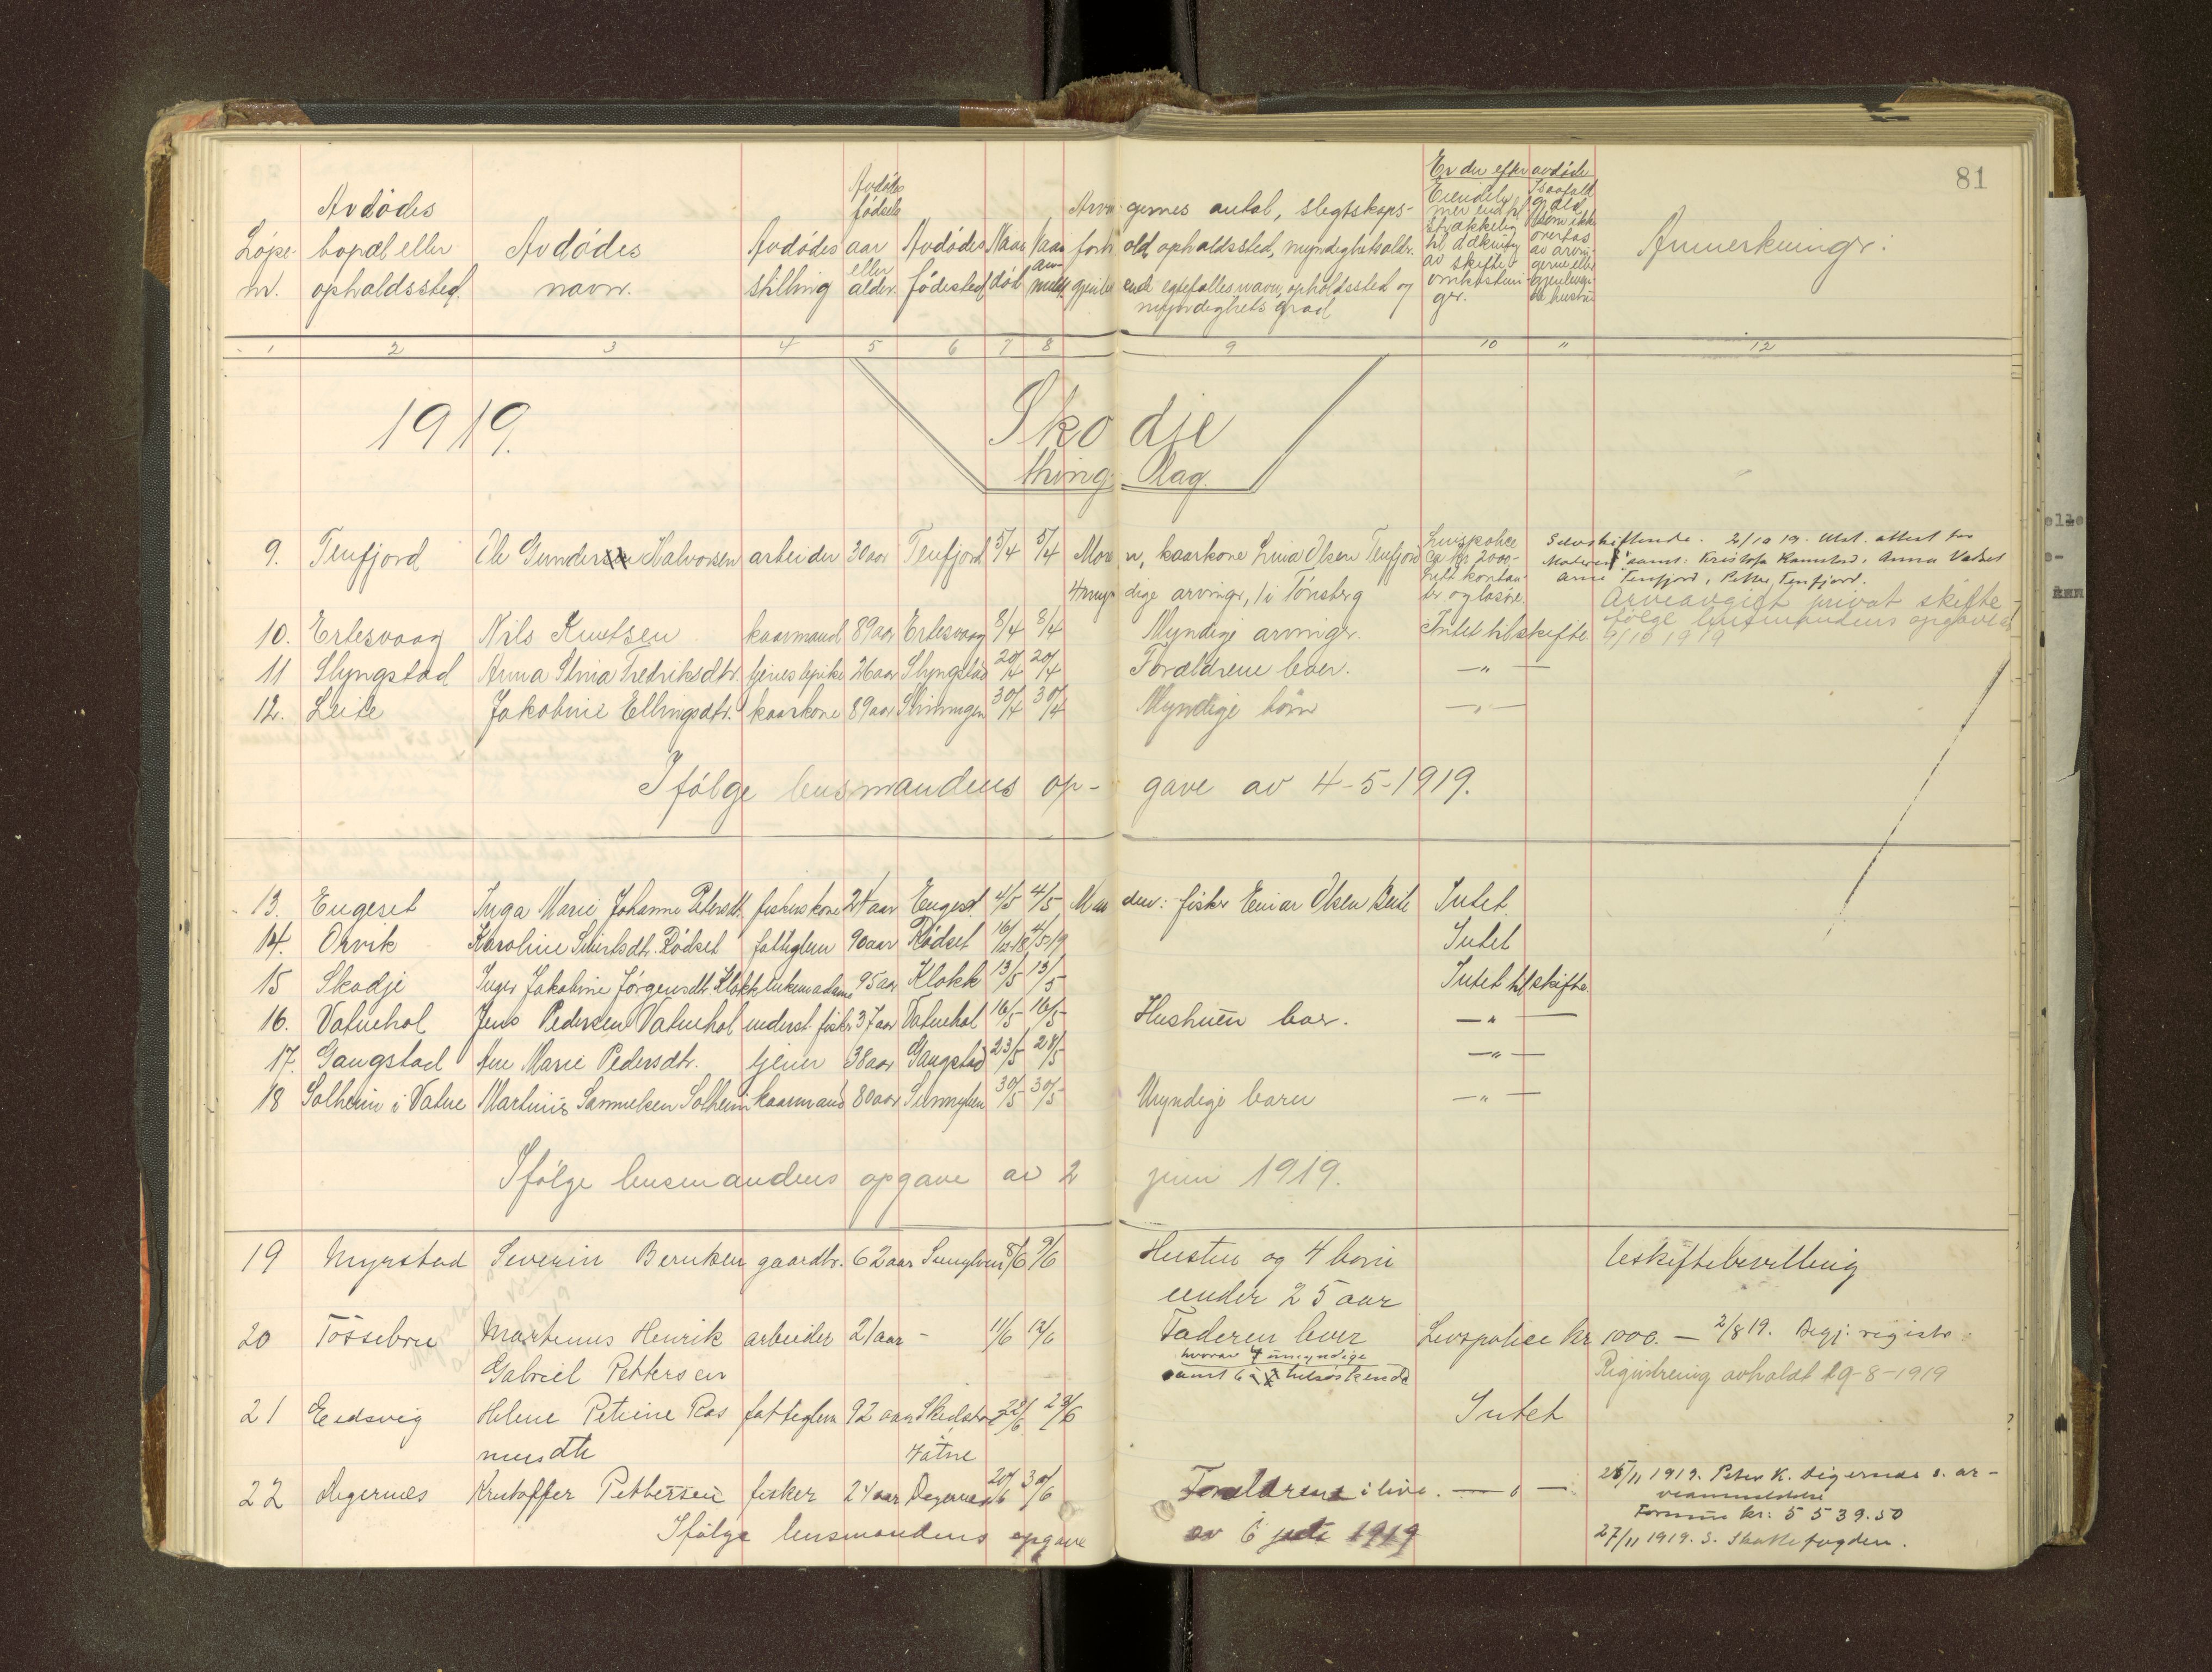 81
Avdödes Avdödes födsels Arvingernes antal, slegtskaps- Er der efter avdöde
Löpe bopæl eller Avdödes Avdödes aar Avdödes Naar Naar forhold, opholdssted, myndighetsalder. Anmerkninger.
nr. opholdssted. navn. stilling eller alder. födested död anmeldt gjenlevende egtefælles navn, opholdssted og
myndighets grad
1 2 3 4 5 6 7 8 9 10 " 12
1919. Skodje
thinglag.
9. Tenfjord Ole Gunder Halvorsen arbeider 30 aar Tenfjord 5/4 5/4 Moren, kaarkone Lina Olsen Tenfjord Livspolice Selvskiftende. 2/10 19. Utst. attest for
ca kr 2000- Moderen samt: Kristofa Kamstad, Anna Vatnet
litt kontan- Arne Tenfjord, Petter Tenfjord.
4 myndige arvinger, 1 i Tönsberg ter og lösöre. Arveavgift privat skifte
10. Erlesvaag Nils Knutsen kaarmand 89 aar Erlesvaag 8/4 8/4 Myndige arvinger. Intet til skifte. fölge lensmandens opgave av
9/10 1919
11 Slyngstad Anna Stina Fredriksdtr. tjenestepike 26 aar Slyngstad 20/4 20/4 Forældrene lever. — " —
12. Leite Jakobine Ellingsdtr. kaarkone 89 aar 30/4 30/4 Myndige börn — " —
Ifölge lensmandens opgave av 4-5-1919.
13. Engeset Inga Marie Johanne Petersdt. fiskerskone 24 aar Engeset 4/5 4/5 Manden: fisker Einar Olsen Leite Intet.
14. Orvik Karoline Sivertsdtr. Rödset fattiglem 90 aar Rödset 16/12 18 4/5 19 Intet
15 Skodje Inger Jakobine Jörgensdtr Klokk enkemadame 95 aar Klokk 13/5 13/5 Intet til skifte.
16. Vatnehol Jens Pedersen Vatnehol underst. fisker 37 aar Vatnehol 16/5 16/5 Hustruen lever. — " —
17. Gangstad Ane Marie Pedersdtr. tjener 38 aar Gangstad 23/5 28/5 — " —
18 Solheim i Vatne Martinus Samuelsen Solheim kaarmand 80 aar Sunnylven 30/5 30/5 Myndige barn — " —
Ifölge lensmandens opgave av 2 juni 1919.
19 Myrstad Severin Berntsen gaardbr. 62 aar Sunnylven 8/6 9/6 Hustru og 4 börn Uskiftebevilling
under 25 aar
20 Tössebro Martinus Henrik arbeider 21 aar - 11/6 12/6 Faderen lever Livspolice kr 1000. — 2/8 19. Begj. registr.
hvorav 4 umyndige
Gabriel Pettersen samt 6 helsöskende Registrering avholdt 19-8-1919
21 Eidsvig Helene Petrine Ras fattiglem 92 aar 22/6 23/6 Intet
musdtr Vatne
22 Digernes Kristoffer Pettersen fisker 24 aar Digernes 20/6 30/6 Forældrene i live. — " — 25/11 1919. Peter K. Digernes s. ar-
veanmeldelse
Formue kr: 5539.50
Ifölge lensmandens opgave av 6 juli 1919 27/11 1919. S. Skattefogden.